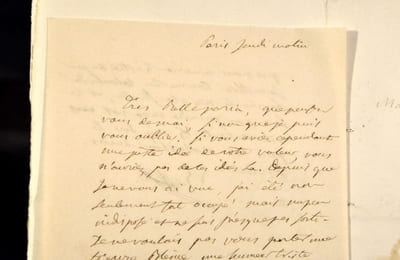 Paris Jeudi matin
Très Belle que pensez
vous de moi. Sinon que je puis
vous oublier. Si vous aviez cependant
une juste idée de votre valeur, vous
n'auriez pas de tes idées là. Depuis que
Je ne vous ai vue, j'ai été non
seulement fort occupé! mais un peu
indisposé et ne suis presque pas sorti.
Je ne voulais pas vous porter une
figure Blême une humeur triste